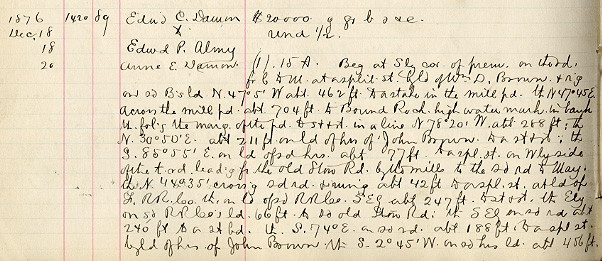 1876 1420 89 Edwd C. Damon $20000 q gr b s &c.
Dec. 18 & und 1/2.
18 Edwd P. Almy
20 Anne E. Damon (1) 15 A. Beg at Sly cor. of prem. on the rd.
fr C to M. at a split st. by ld of Wm D. Brown. & rg
on sd B's ld N. 47° 5' W abt. 462 ft. to a stake in the mill pd. th N 47° 45' E
across the mill pd. abt 704 ft to Bound Rock. high water mark in bank
th. folg the marg. of the pd. to st & st. in a line N 78° 20' W. abt 268 ft; th
N. 30° 50' E. abt 211 ft on ld of hrs of John Brown. to a st & st; th
S. 85° 55' E. on ld of sd hrs. abt 77 ft. to a spl. st. on Wly side
of the t rd. leadg fr the old Stow Rd. by the mills to the sd rd to May.
th N. 44° 35' crossig sd rd. & runig abt 42 ft to a spl. st. at ld of
F. RR. Co. th. on ld of sd RR Co. S Ely abt 247 ft. to st & st. th Ely
on sd RR Co's ld. 66 ft to sd old Stow Rd: th S Ely on sd rd abt
240 ft to a st bd. th. S. 74° E. on sd rd. abt 188 ft. to a spl st
by ld of hrs of John Brown th S. 2° 45' W. on sd hrs ld. abt 456 ft.